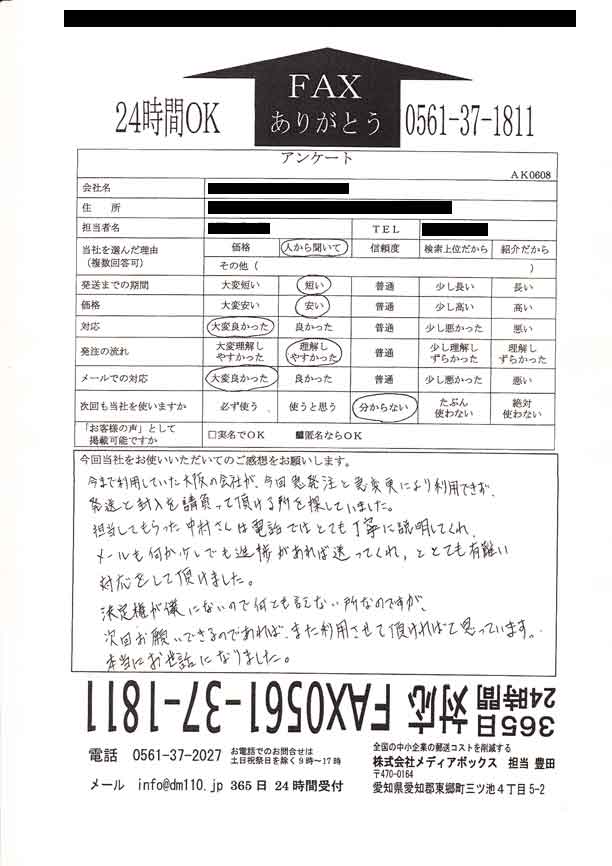 FAX
ありがとう
24時間OK
0561-37-1811
アンケート
AK0608
会社名
住 所
担当者名
TEL
当社を選んだ理由
(複数回答可)
価格 人から聞いて 信頼度 検索上位だから 紹介だから
その他( )
発送までの期間 大変短い 短い 普通 少し長い 長い
価格 大変安い 安い 普通 少し高い 高い
対応 大変良かった 良かった 普通 少し悪かった 悪い
発注の流れ 大変理解しやすかった 理解しやすかった 普通 少し理解しずらかった 理解しずらかった
メールでの対応 大変良かった 良かった 普通 少し悪かった 悪い
次回も当社を使いますか 必ず使う 使うと思う 分からない たぶん使わない 絶対使わない
「お客様の声」として
掲載可能ですか
□実名でOK ■匿名ならOK
今回当社をお使いいただいてのご感想をお願いします。
今まで利用していた大阪の会社が、今回急発注と急変更により利用できず、
発送と封入を請負って頂ける所を探していました。
担当してもらった中村さんは電話ではとても丁寧に説明してくれ、
メールも何か少しでも進捗があれば送ってくれ、ととても有難い
対応をして頂けました。
決定権が僕にないので何とも言えない所なのですが、
次回お願いできるのであれば、また利用させて頂ければと思っています。
本当にお世話になりました。
365日
24時間 対応 FAX0561-37-1811
電話 0561-37-2027 お電話でのお問合せは
土日祝祭日を除く9時~17時
メール info@dm110.jp 365日 24時間受付
全国の中小企業の郵送コストを削減する
株式会社メディアボックス 担当 豊田
〒470-0164
愛知県愛知郡東郷町三ツ池4丁目5-2